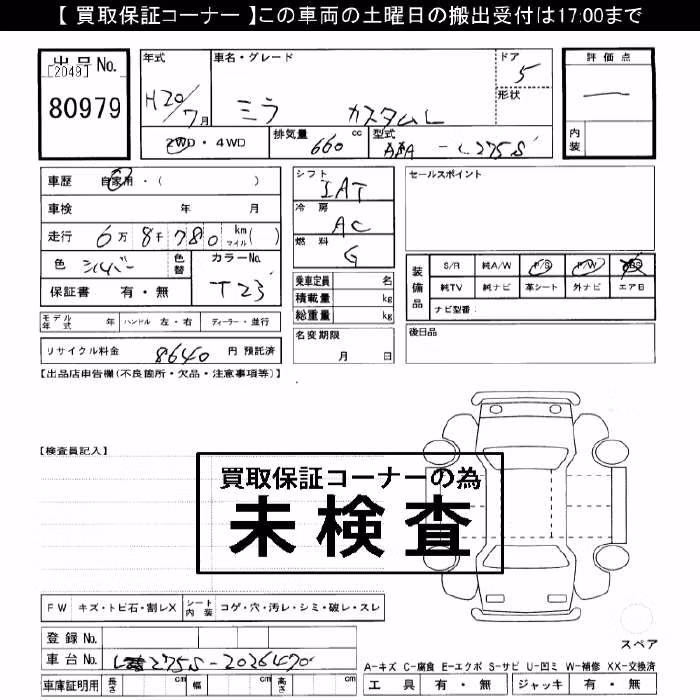 【 買取保証コーナー 】この車両の土曜日の搬出受付は17:00まで
出品 No.
[2049]
80979
年式
H20/7月
車名・グレード
ミラ カスタムL
ドア
5
形状
評価点
—
内装
2WD ・ 4WD
排気量 660 cc
型式 ABA - L275S
車歴 自家用 ・ ( )
車検 年 月
走行 6万 8千 780 km マイル ( )
色 シルバー 色替 カラーNo. T23
保証書 有 ・ 無
シフト IAT
冷房 AC
燃料 G
乗車定員 名
積載量 kg
総重量 kg
セールスポイント
装備品 S/R 純A/W P/S P/W ABS
純TV 純ナビ 革シート 外ナビ エアB
ナビ型番:
モデル年式 年 ハンドル 左 ・ 右 ディーラー ・ 並行
名変期限 月 日
後日品
リサイクル料金 8640 円 預託済
【出品店申告欄(不良箇所・欠品・注意事項等)】
【検査員記入】
買取保証コーナーの為
未検査
FW キズ・トビ石・割レX シート内装 コゲ・穴・汚レ・シミ・破レ・スレ
登録 No.
車台 No. L275S-2026470
車庫証明用 長さ cm 幅 cm 高さ cm
スペア
A-キズ C-腐食 E-エクボ S-サビ U-凹ミ W-補修 XX-交換済
工具 有 ・ 無 ジャッキ 有 ・ 無